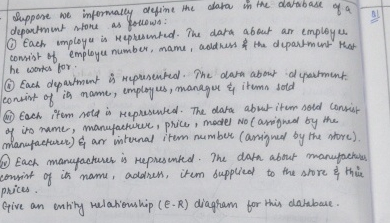 Suppose we informally define the data in the database of a
department store as follows:
(i) Each employee is represented. The data about an employee
consist of employee number, name, address & the department that
he works for.
(ii) Each department is represented. The data about department
consist of its name, employees, manager & items sold
(iii) Each item sold is represented. The data about item sold consist
of its name, manufacturer, price, model No (assigned by the
manufacturer) & an internal item number (assigned by the store).
(iv) Each manufacturer is represented. The data about manufacturer
consist of its name, address, item supplied to the store & their
prices.
Give an entity relationship (E-R) diagram for this database.